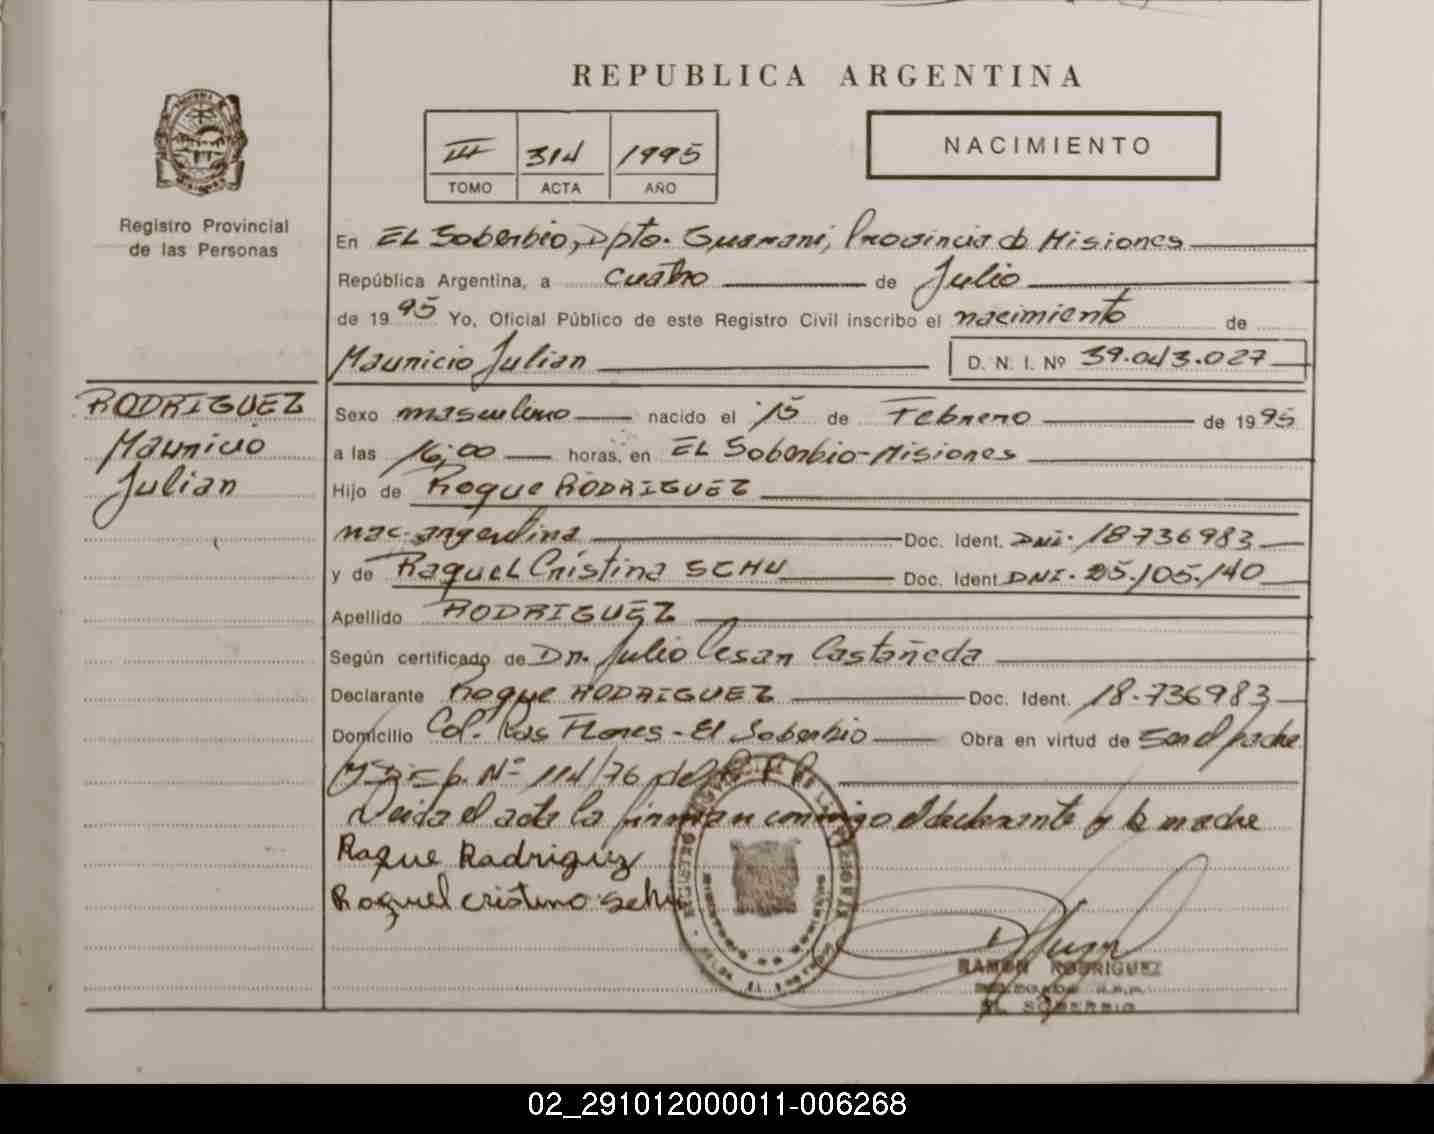 REPUBLICA ARGENTINA
III 314 1995
TOMO ACTA AÑO
NACIMIENTO
Registro Provincial
de las Personas
En EL Soberbio, Dpto. Guarani, Provincia de Misiones
República Argentina, a cuatro de Julio
de 1995 Yo, Oficial Público de este Registro Civil inscribo el nacimiento de
Mauricio Julian D. N. I. Nº 39.043.027
RODRIGUEZ
Mauricio
Julian
Sexo masculino nacido el 15 de Febrero de 1995
a las 16,00 horas, en EL Soberbio-Misiones
Hijo de Roque RODRIGUEZ
nac. argentina Doc. Ident. DNI. 18736983
y de Raquel Cristina SCHU Doc. Ident. DNI. 25.105.140
Apellido RODRIGUEZ
Según certificado de Dr. Julio Cesar Castañeda
Declarante Roque RODRIGUEZ Doc. Ident. 18.736983
Domicilio Col. Las Flores - El Soberbio Obra en virtud de ser el padre
Nº 114/76 del
Leida el acta la firman conmigo el declarante y la madre
Roque Rodriguez
Raquel cristina schu
RAMON RODRIGUEZ
EL SOBERBIO
02_291012000011-006268